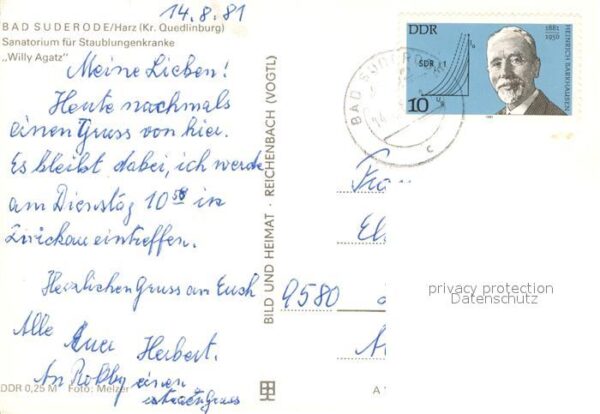 14.8.81
BAD SUDERODE/Harz (Kr. Quedlinburg)
Sanatorium für Staublungenkranke
„Willy Agatz"
Meine Lieben!
Heute nochmals
einen Gruss von hier.
Es bleibt dabei, ich werde
am Dienstag 10⁵⁸ in
Zwickau eintreffen.
Herzlichen Gruss an Euch
Alle Euer Herbert.
An Robby einen
extra Gruss
DDR 0,25 M Foto: Melzer
BILD UND HEIMAT · REICHENBACH (VOGTL)
DDR
1881
1956
HEINRICH BARKHAUSEN
10
1981
BAD SUDERO
c
9580
privacy protection
Datenschutz
A 1